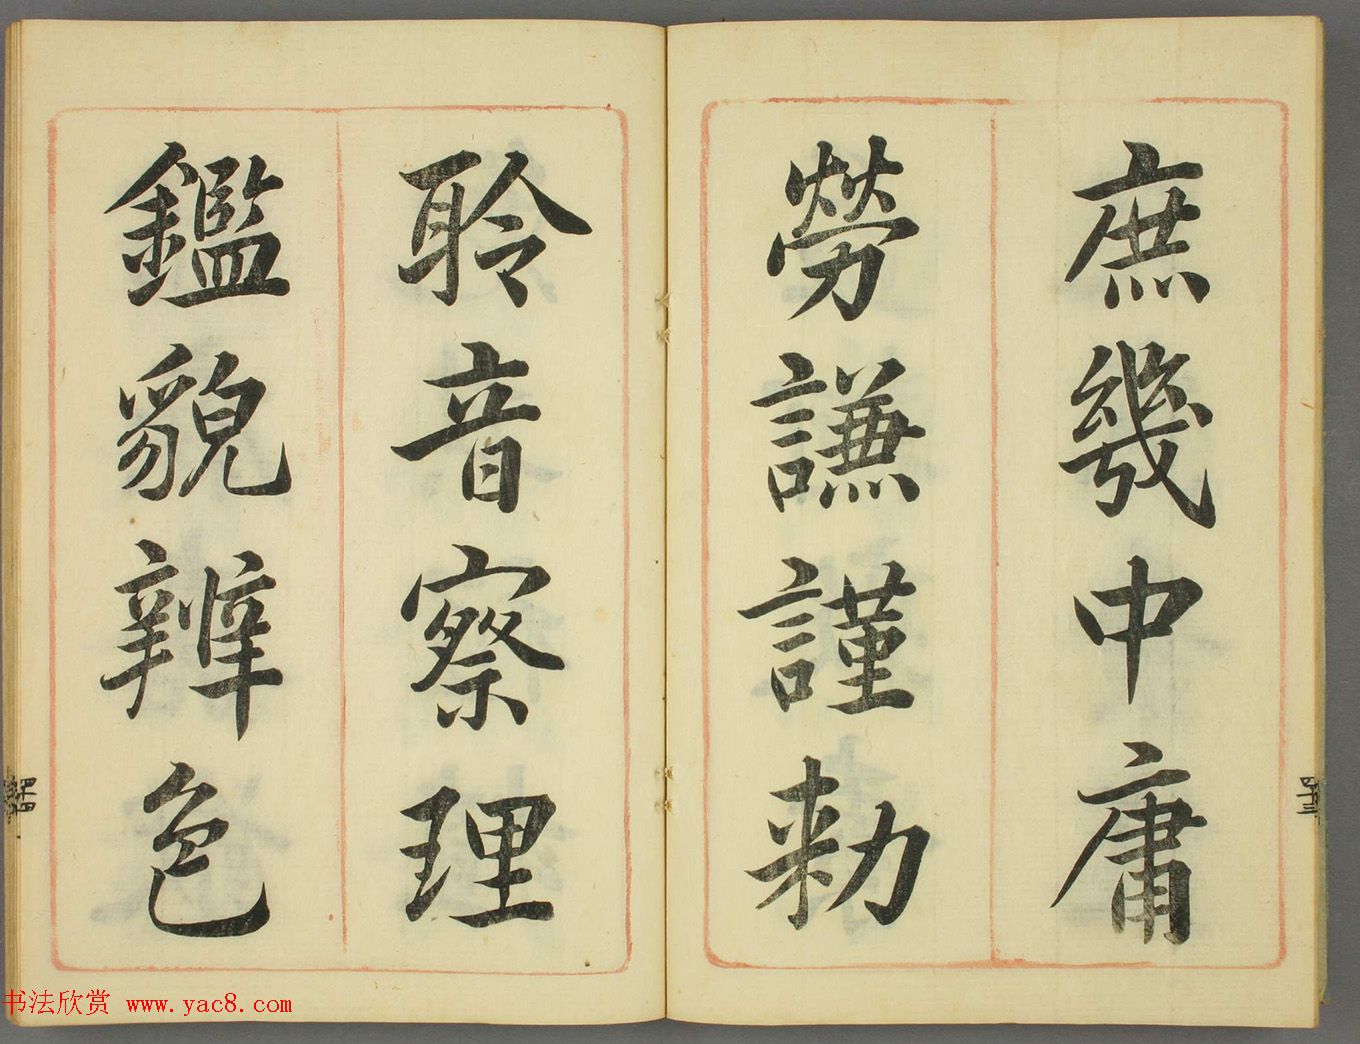 庶幾中庸
勞謙謹勑
聆音察理
鑑貌辨色
四十三
四十四
书法欣赏 www.yac8.com